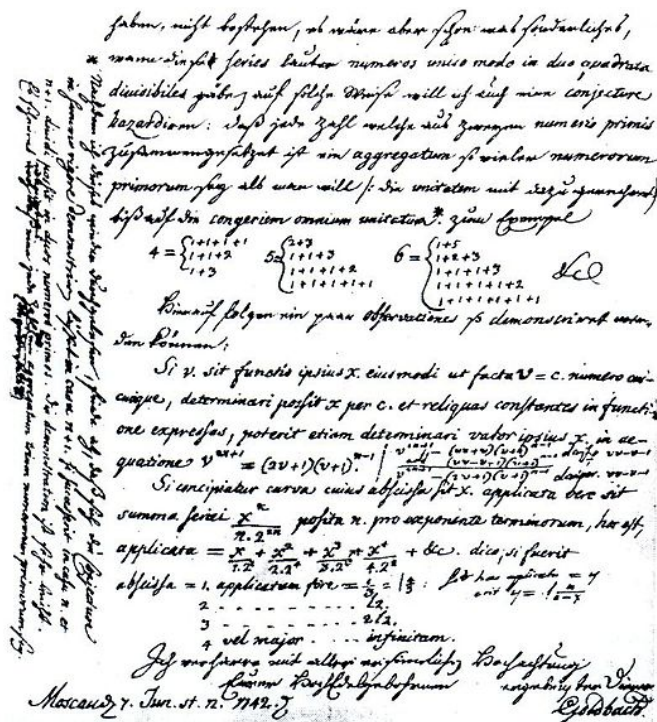 haben, nicht bestehen, es wäre aber schon was sonderliches,
wann diese series lauter numeros unico modo in duo quadrata
divisibiles gäbe, auf solche Weise will ich auch eine conjecture
hazardiren: daß jede Zahl welche aus zweyen numeris primis
zusammengesetzet ist ein aggregatum so vieler numerorum
primorum sey als man will /: die unitatem mit dazu gerechnet :/
biß auf die congeriem omnium unitatum*. zum Exempel
4 = { 1+1+1+1 5 = { 2+3 6 = { 1+5
1+1+2 1+1+3 1+2+3
1+3 1+1+1+2 1+1+1+3
1+1+1+1+1 1+1+1+1+2
1+1+1+1+1+1 &c
Hierauf folgen ein paar observationes so demonstriret wer-
den können:
Si v. sit functio ipsius x. eiusmodi ut facta v = c. numero cui-
cunque, determinari possit x per c. et reliquas constantes in functi-
one expressas, poterit etiam determinari valor ipsius x. in ae-
quatione v^{2n+1} = (2v+1)(v+1)^{n-1}
Si concipiatur curva cuius abscissa sit x. applicata vero sit
summa seriei x^n/n.2^{2n} posita n. pro exponente terminorum, hoc est,
applicata = x/1.2² + x²/2.2⁴ + x³/3.2⁶ + x⁴/4.2⁸ + &c. dico, si fuerit
abscissa = 1. applicatam fore = l4/3
2 . . . . . . . l2.
3 . . . . . . . 2l2.
4 vel major . . . . infinitam.
Ich verharre mit aller ersinnlichen Hochachtung
Euer HochEdelgebohrnen ergebenster Diener
Moscau d. 7. Jun. st. n. 1742. Goldbach.
* Nachdem ich dieses wieder durchgelesen, finde ich, daß sich die Conjecture
in summo rigore demonstriren lässet in casu n+1. si successerit in casu n. et
n+1. dividi possit in duos numeros primos. Die demonstration ist sehr leicht.
Es scheinet wenigstens, daß eine jede Zahl aggregatum trium numerorum primorum sey.